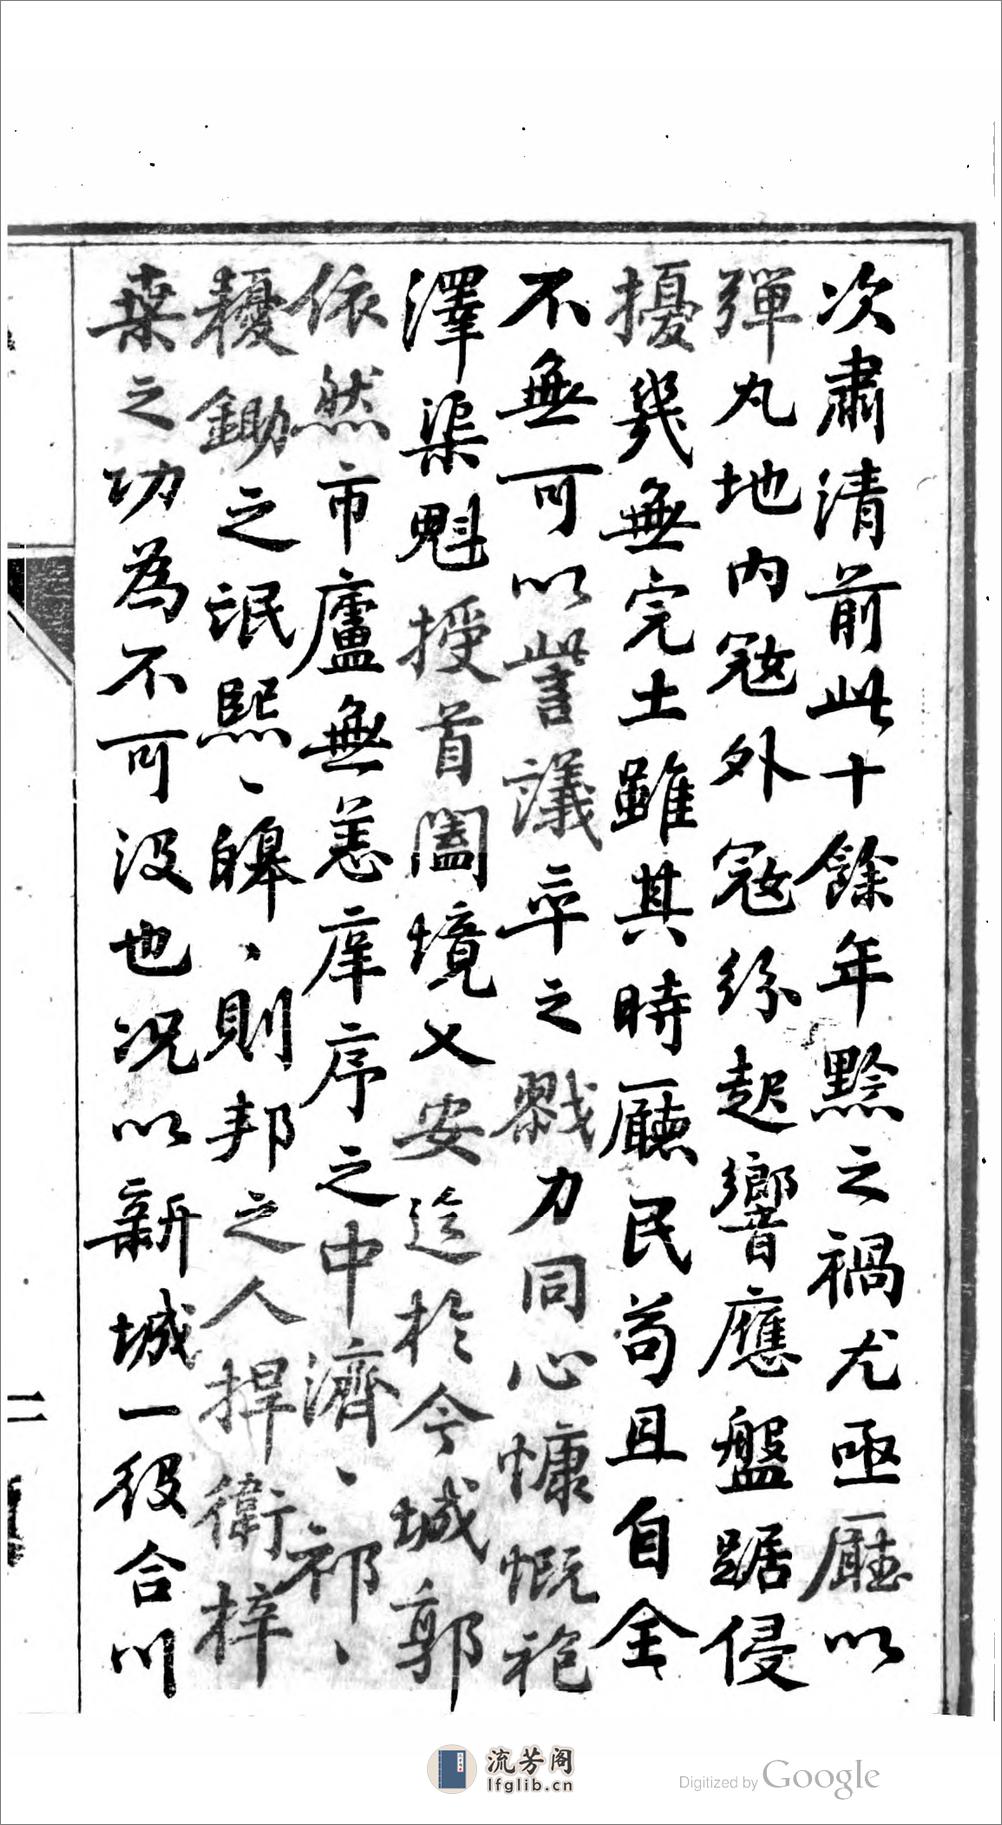 次肅清前此十餘年黔之禍尤亟廳以
彈丸地內寇外寇紛起響應盤踞侵
擾幾無完土雖其時廳民苟且自全
不無可以訾議卒之戮力同心慷慨袍
澤渠魁授首闔境乂安迄於今城郭
依然市廬無恙庠序之中濟、祁、
耰鋤之氓熙、皞、則邦之人捍衛梓
桑之功為不可沒也况以新城一役合川
二
流芳阁
lfglib.cn
Digitized by Google